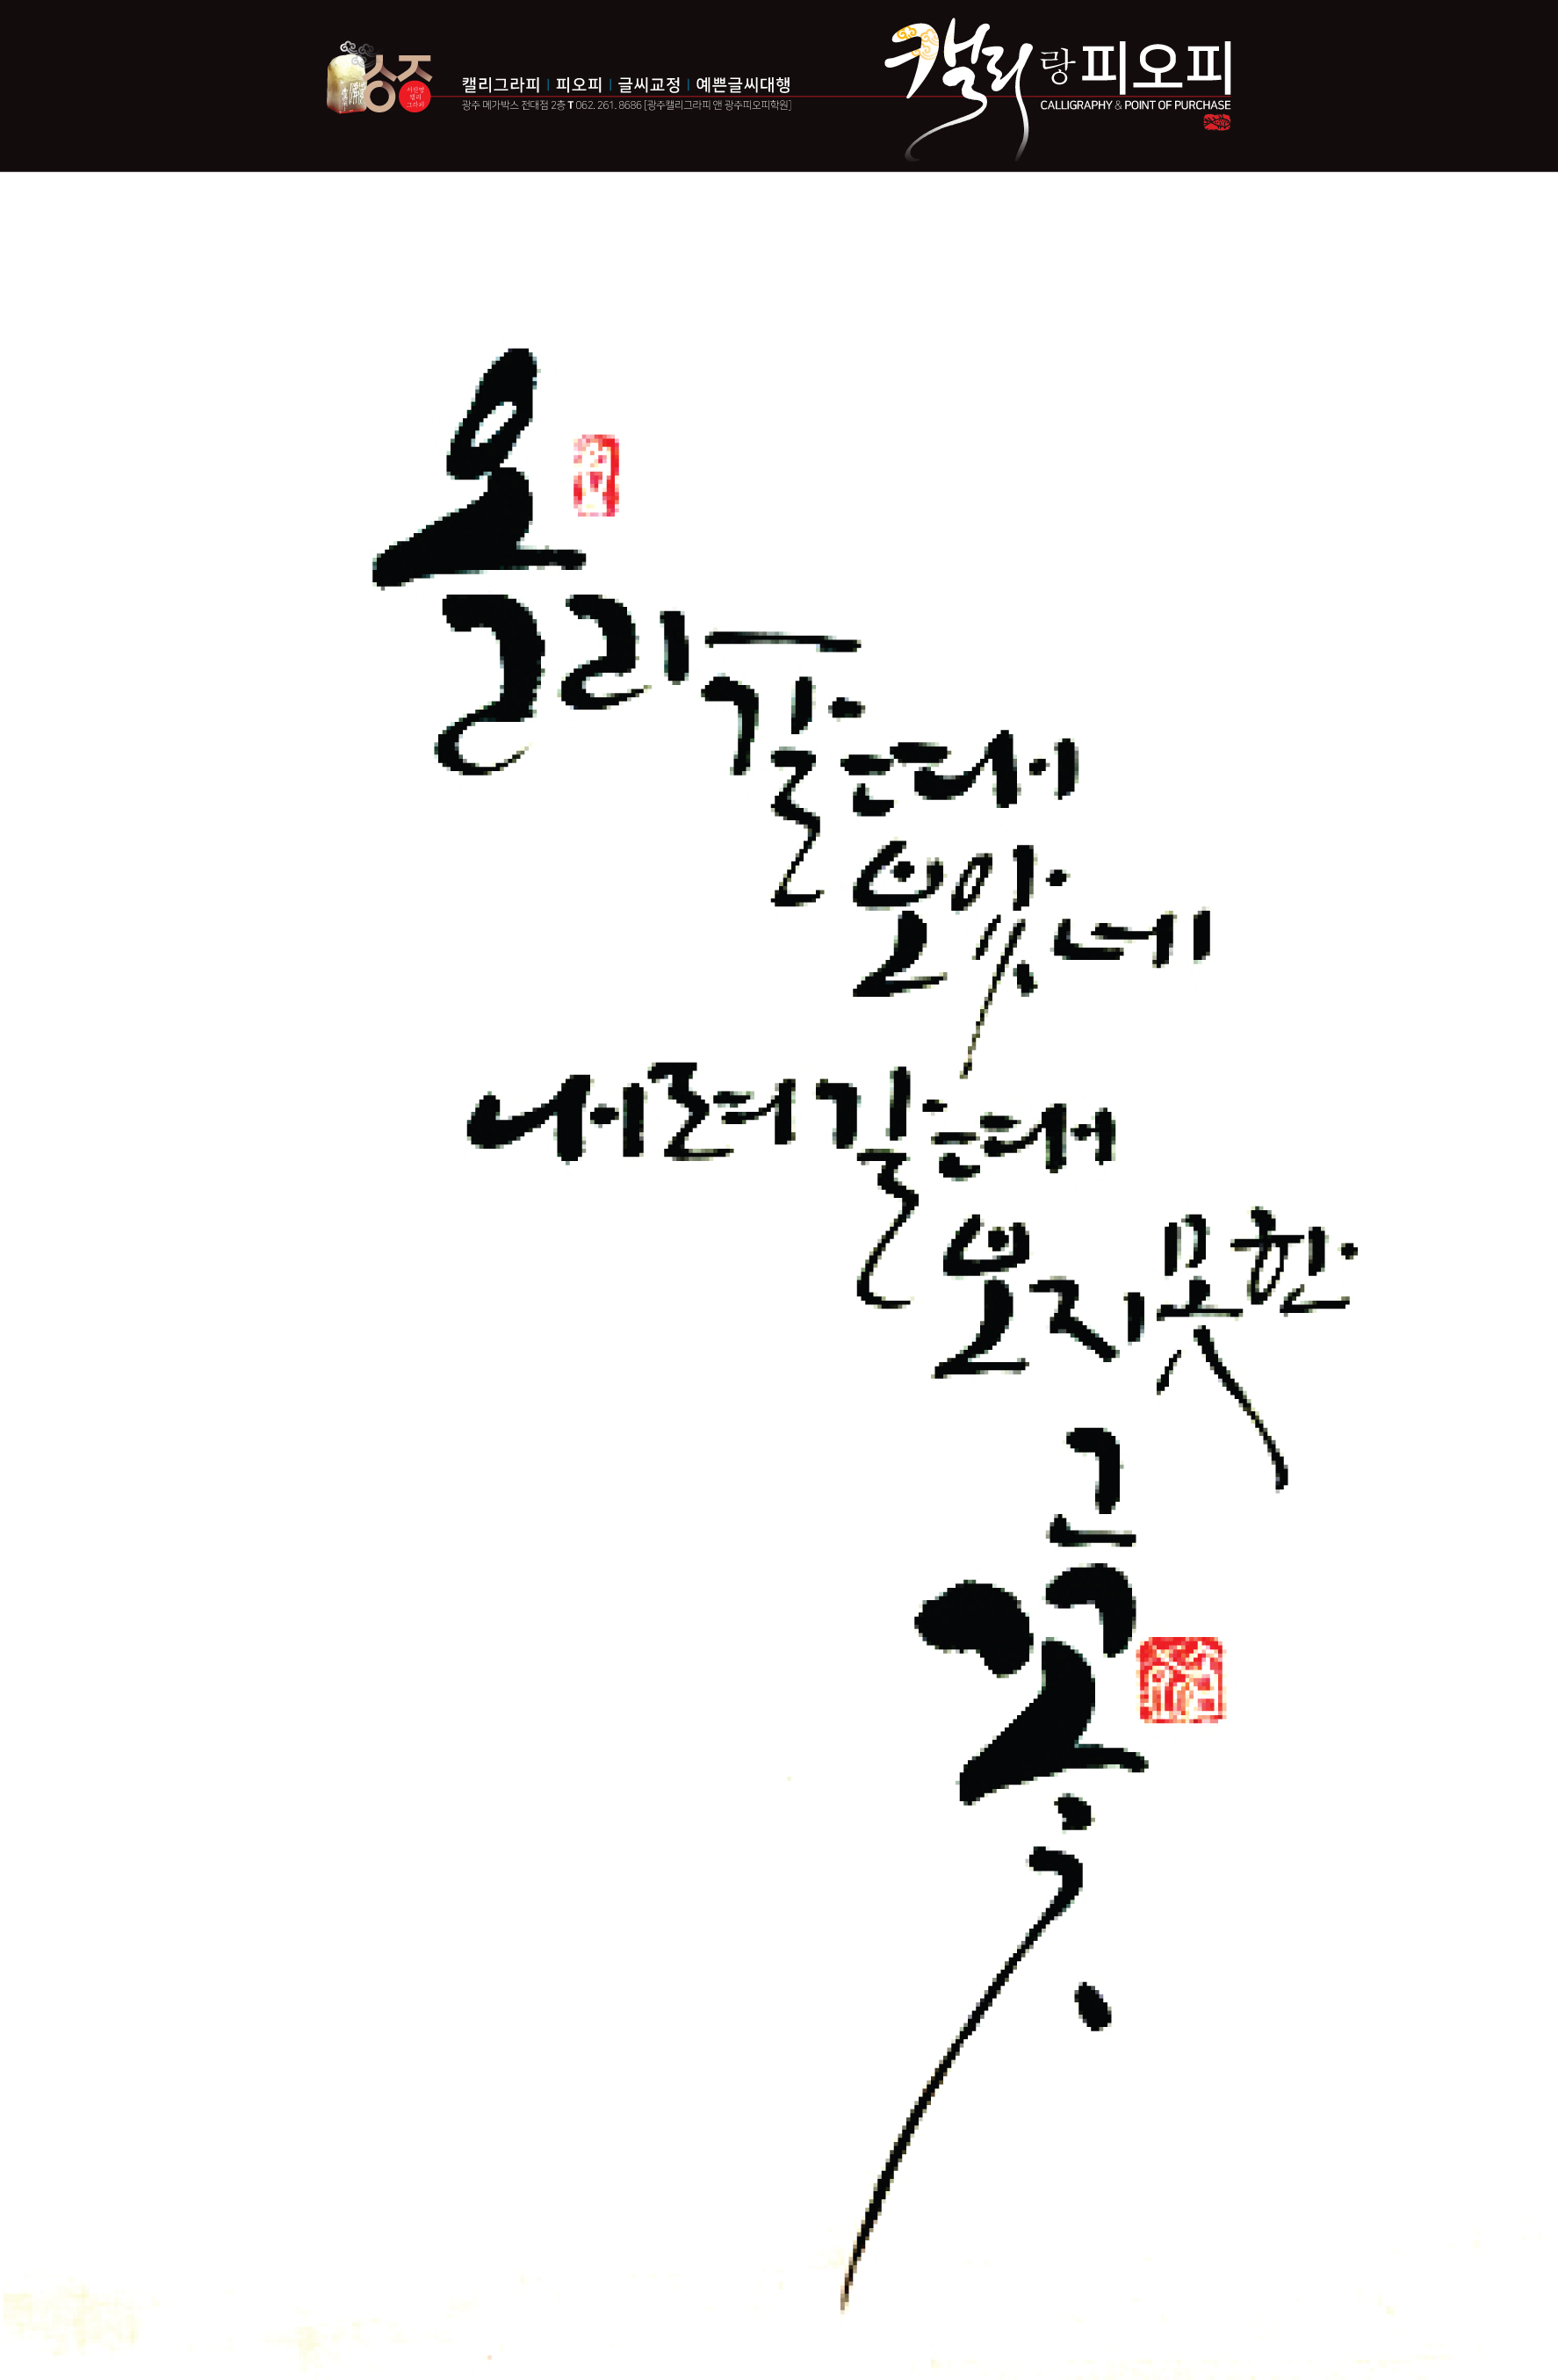 캘리그라피 | 피오피 | 글씨교정 | 예쁜글씨대행
광주 메가박스 전대점 2층 T 062. 261. 8686 [광주캘리그라피 앤 광주피오피학원]
캘리랑피오피
CALLIGRAPHY & POINT OF PURCHASE
올라갈때
보았네
내려갈때
보지못한
그
꽃